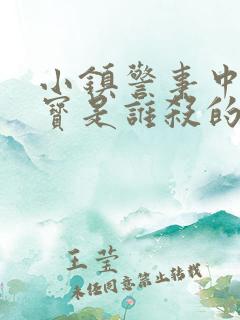 小鎮警事中
寶是誰殺的
王莹
未经同意禁止转载